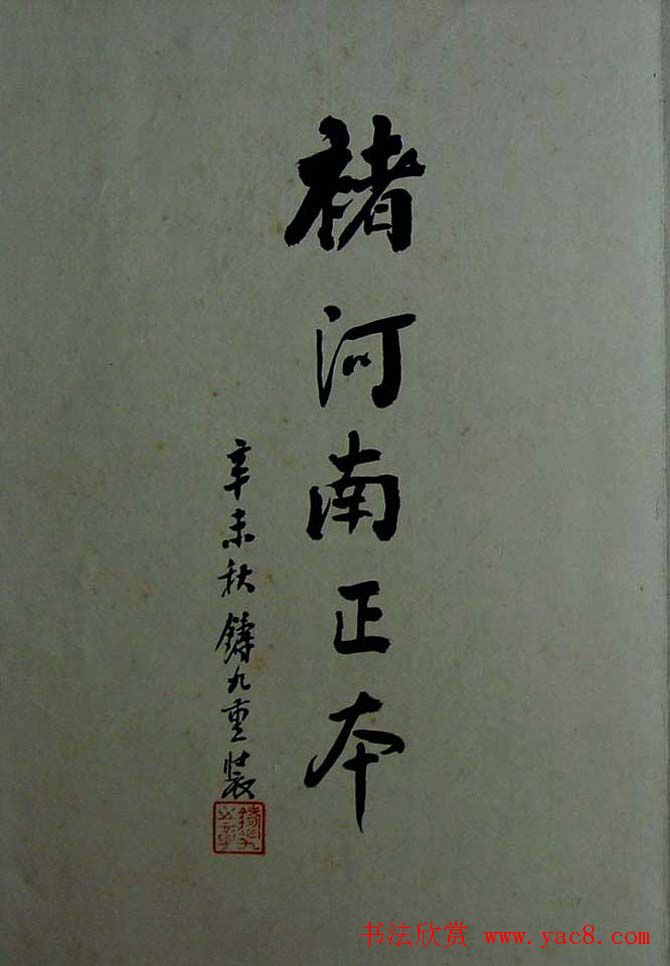 褚河南正本
辛未秋鑄九重裝
书法欣赏 www.yac8.com